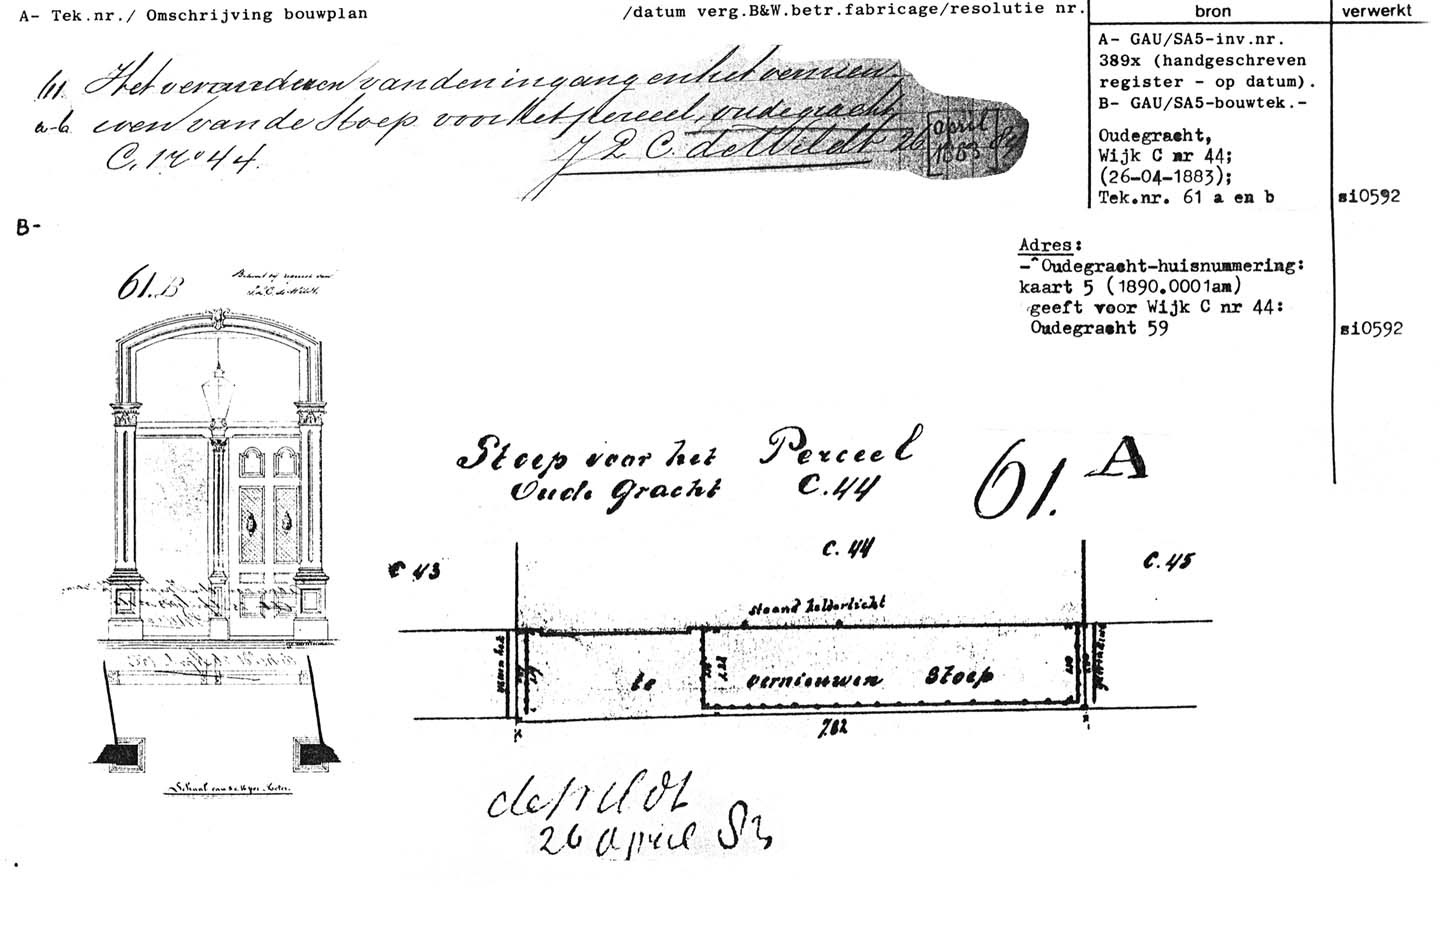 A- Tek.nr./ Omschrijving bouwplan /datum verg.B&W.betr.fabricage/resolutie nr.
bron
verwerkt
61 Het veranderen van den ingang en het vernieu-
a-b. wen van de Stoep voor het perceel, oudegracht
C. No 44. J. P. C. de Wildt 26 april 1883
A- GAU/SA5-inv.nr.
389x (handgeschreven
register - op datum).
B- GAU/SA5-bouwtek.-
Oudegracht,
Wijk C nr 44;
(26-04-1883);
Tek.nr. 61 a en b
si0592
B-
Adres:
- Oudegracht-huisnummering:
kaart 5 (1890.0001am)
geeft voor Wijk C nr 44:
Oudegracht 59
si0592
61.B
Stoep voor het Perceel
Oude Gracht C.44
61. A
C. 44
C 43
C. 45
staand kelderlicht
te vernieuwen Stoep
7.82
de Wildt
26 april 83